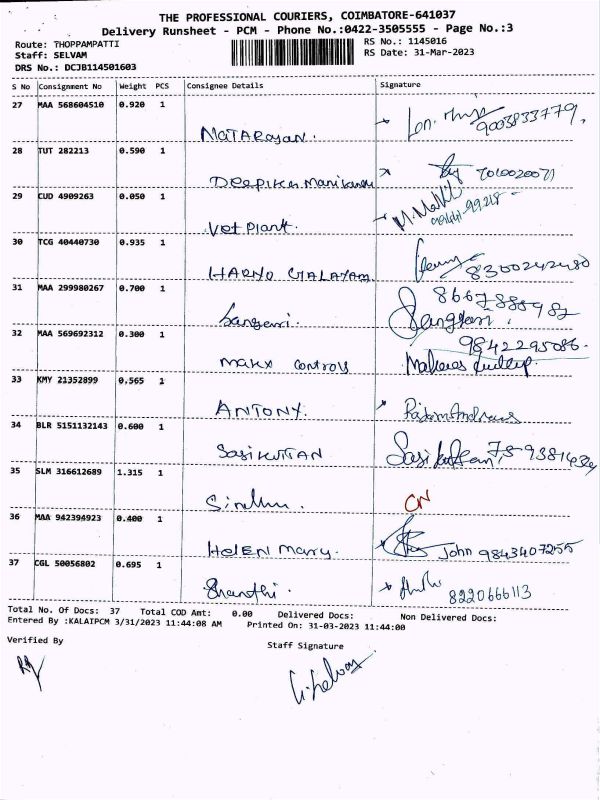 THE PROFESSIONAL COURIERS, COIMBATORE-641037
Delivery Runsheet - PCM - Phone No.:0422-3505555 - Page No.:3
Route: THOPPAMPATTI
RS No.: 1145016
Staff: SELVAM
RS Date: 31-Mar-2023
DRS No.: DCJB114501603
S No Consignment No Weight PCS Consignee Details Signature
27 MAA 568604510 0.920 1
NATARAJAN. 9003833779,
28 TUT 282213 0.590 1
Deepika Manikandu 7010020071
29 CUD 4909263 0.050 1
Vet plant.
30 TCG 40440730 0.935 1
8300242480
31 MAA 299980267 0.700 1
32 MAA 569692312 0.300 1
9842295086.
Makx controls
33 KMY 21352899 0.565 1
ANTONY.
34 BLR 5151132143 0.600 1
SASIKUTTAN
35 SLM 316612689 1.315 1
Sindhu. CN
36 MAA 942394923 0.400 1
HELEN Mary. John 9843407255
37 CGL 50056802 0.695 1
Shanthi. 8220666113
Total No. Of Docs: 37 Total COD Amt: 0.00 Delivered Docs: Non Delivered Docs:
Entered By :KALAIPCM 3/31/2023 11:44:08 AM Printed On: 31-03-2023 11:44:00
Verified By
Staff Signature